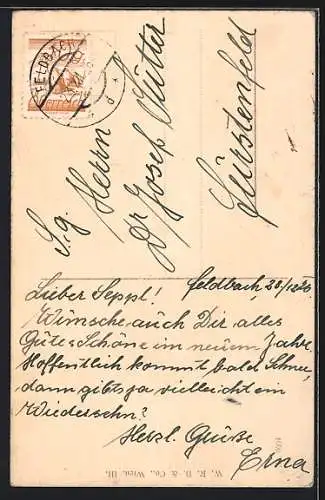 FELDBACH
S.g. Herrn
Dr Josef
Fürstenfeld
Feldbach, 28/12 26
Lieber Seppl!
Wünsche auch Dir alles
Gute & Schöne im neuem Jahre.
Hoffentlich kommt bald Schnee,
dann gibts ja vielleicht ein
Wiedersehn?
Herzl. Grüße
Erna
W. R. B. & Co., Wien, III.